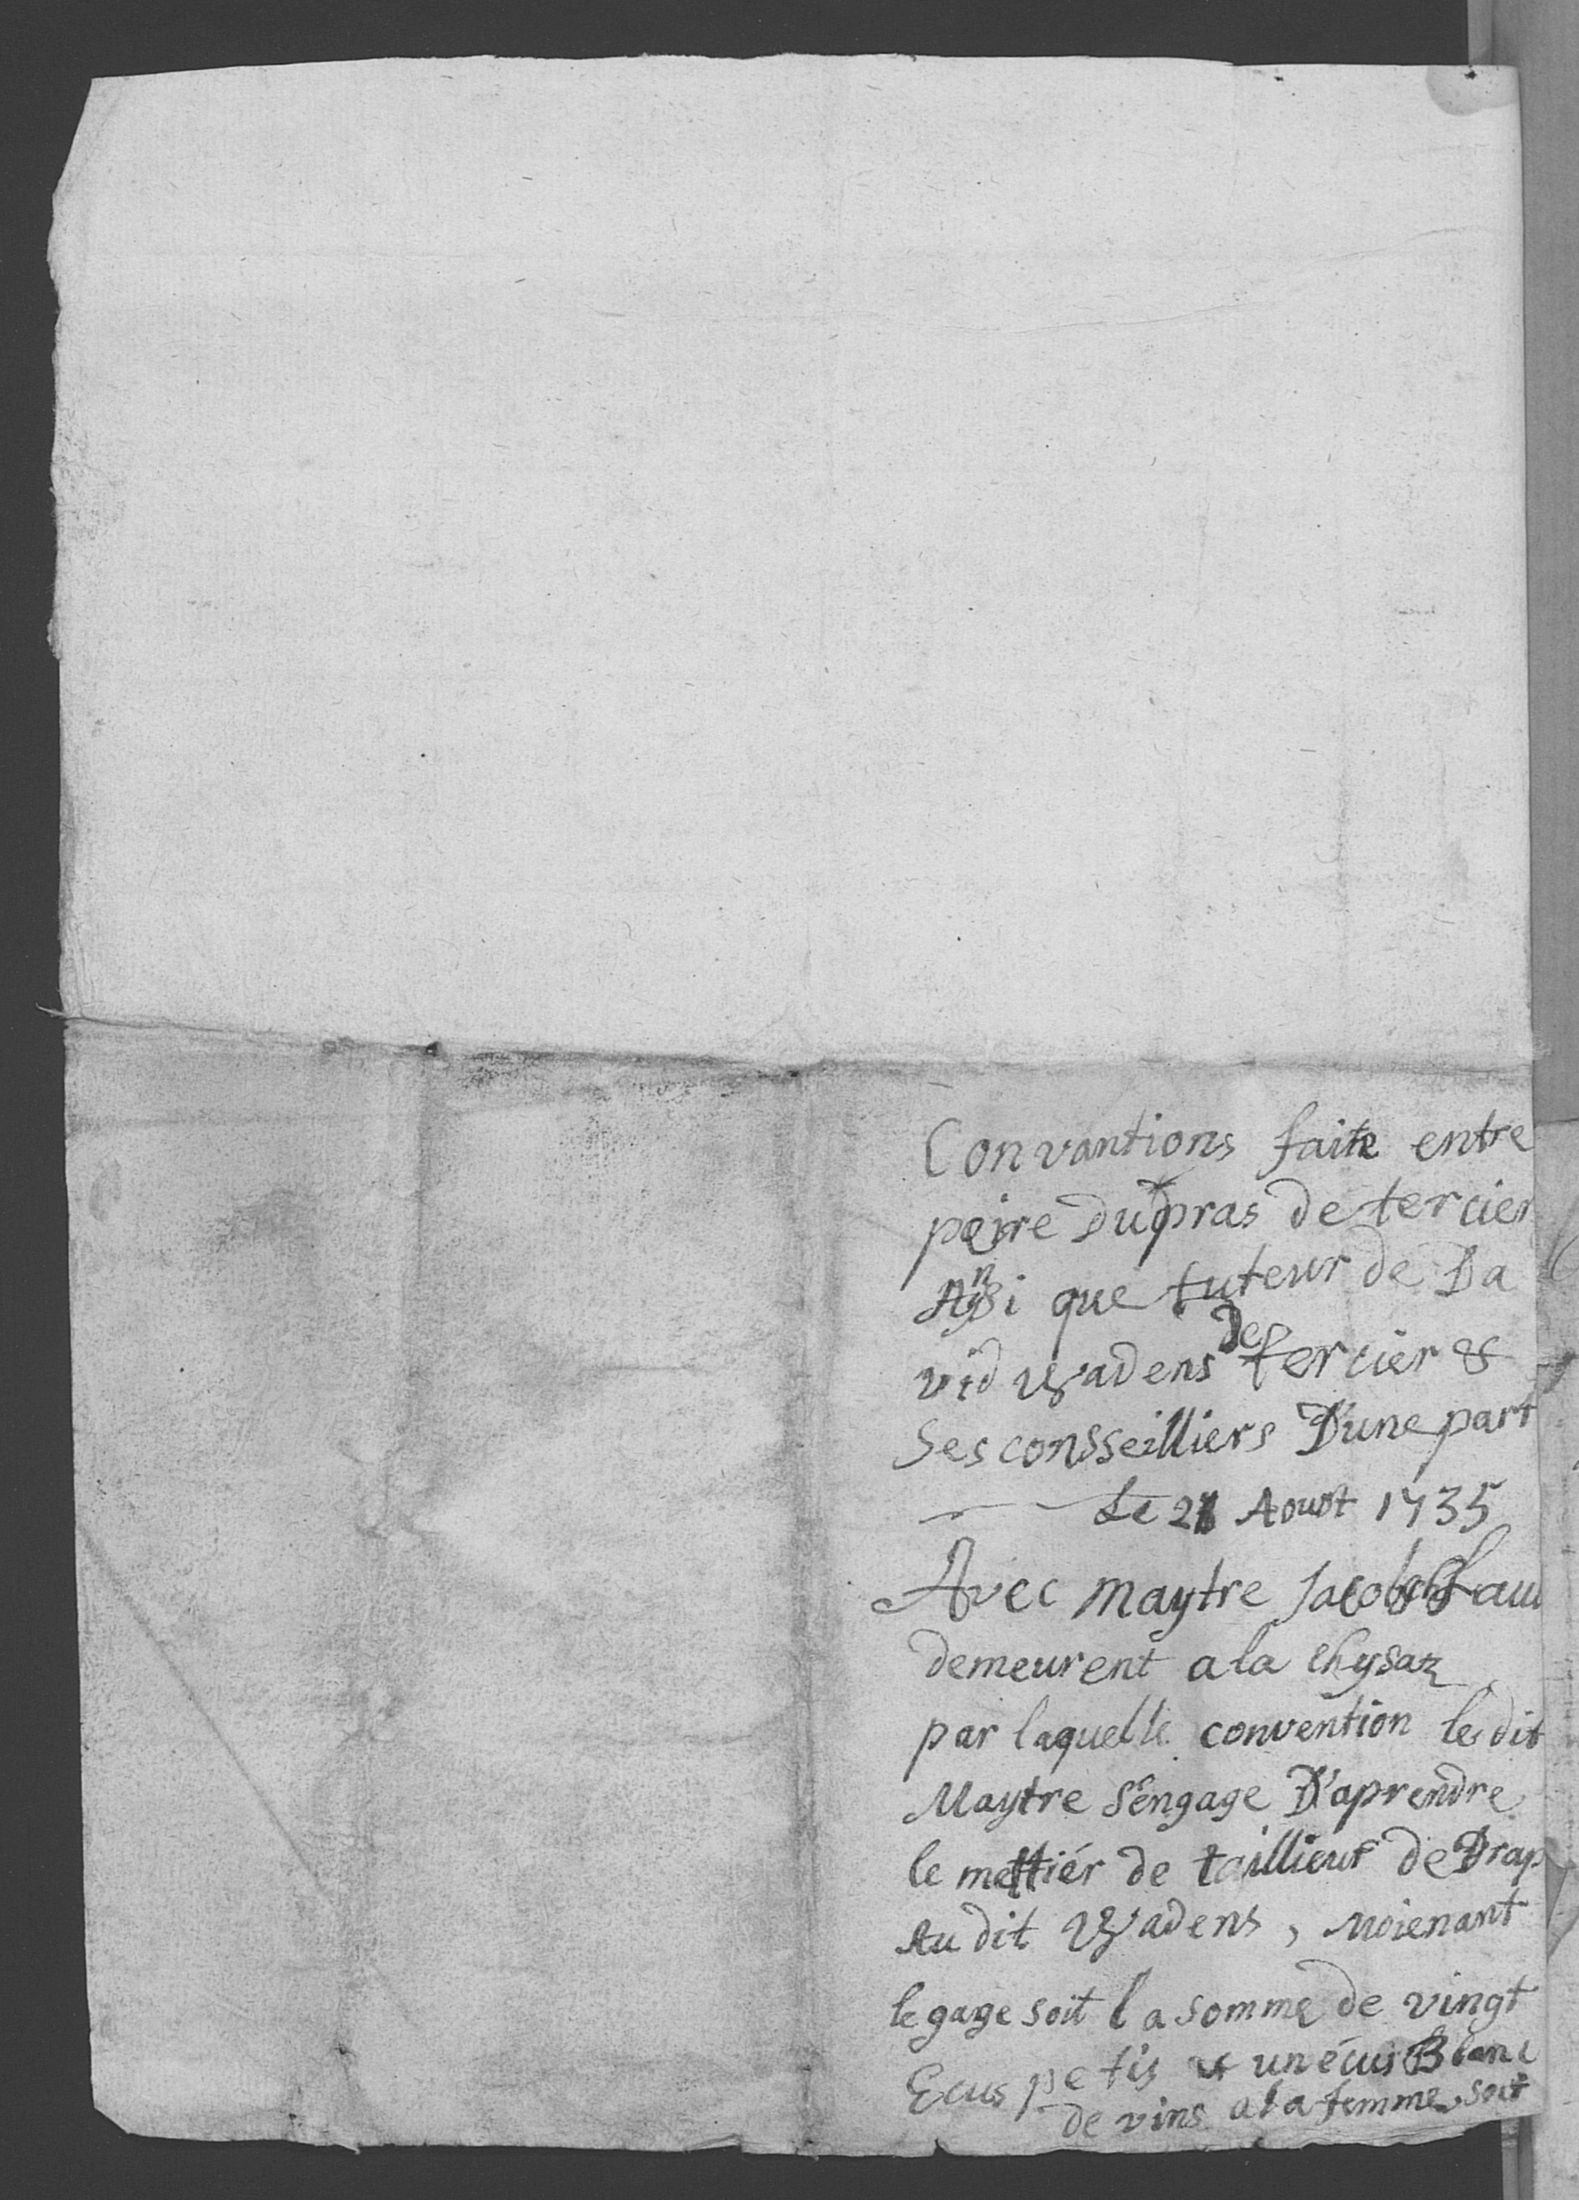 Convantions faite entre
peire Dupras de tercier
Ainsi que tuteur de Da
vid Wadens de tercier &
Ses consseilliers D'une part
Le 21 Aoust 1735
Avec Maytre Jacob
demeurent a la Chysaz
par laquelle convention le dit
Maytre s'engage D'aprendre
le mettiér de taillieur de Drap
Au dit Wadens, Moienant
le gage soit la somme de vingt
Ecus petis & un écus Blanc
de vins a la femme soit